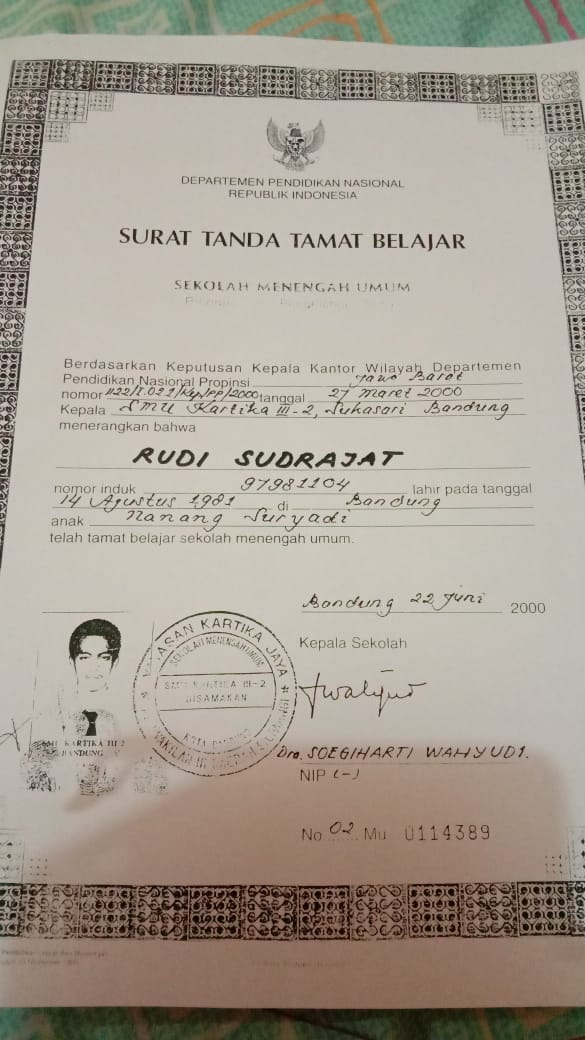 DEPARTEMEN PENDIDIKAN NASIONAL
REPUBLIK INDONESIA
SURAT TANDA TAMAT BELAJAR
SEKOLAH MENENGAH UMUM
Berdasarkan Keputusan Kepala Kantor Wilayah Departemen
Pendidikan Nasional Propinsi Jawa Barat
nomor 1122/I.022/Kep/PP/2000 tanggal 27 Maret 2000
Kepala SMU Kartika III-2, Sukasari Bandung
menerangkan bahwa
RUDI SUDRAJAT
nomor induk 97981104 lahir pada tanggal
14 Agustus 1981 di Bandung
anak Nanang Suryadi
telah tamat belajar sekolah menengah umum.
Bandung 22 Juni 2000
Kepala Sekolah
YAYASAN KARTIKA JAYA
SEKOLAH MENENGAH UMUM
SMU KARTIKA III-2
DISAMAKAN
KOTA BANDUNG
SMU KARTIKA III-2
BANDUNG
Dra. SOEGIHARTI WAHYUDI.
NIP (-)
No 02 Mu 0114389